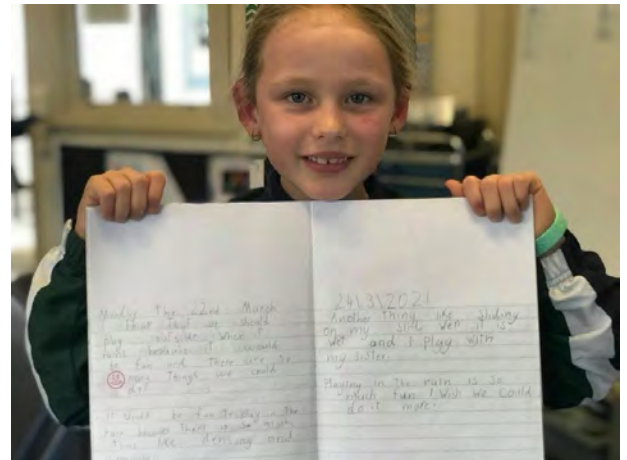 Monday The 22nd March
I that that we should
play outside When
rains because it would
be fun and There are so
many Things we could
do!
It would be fun to play in The
rain because There is so many
like and
24\3\2021
Another Thing like sliding
on my wen it is
wet and I play with
my sister.
Playing in The rain is so
much fun I wish we could
do it more.